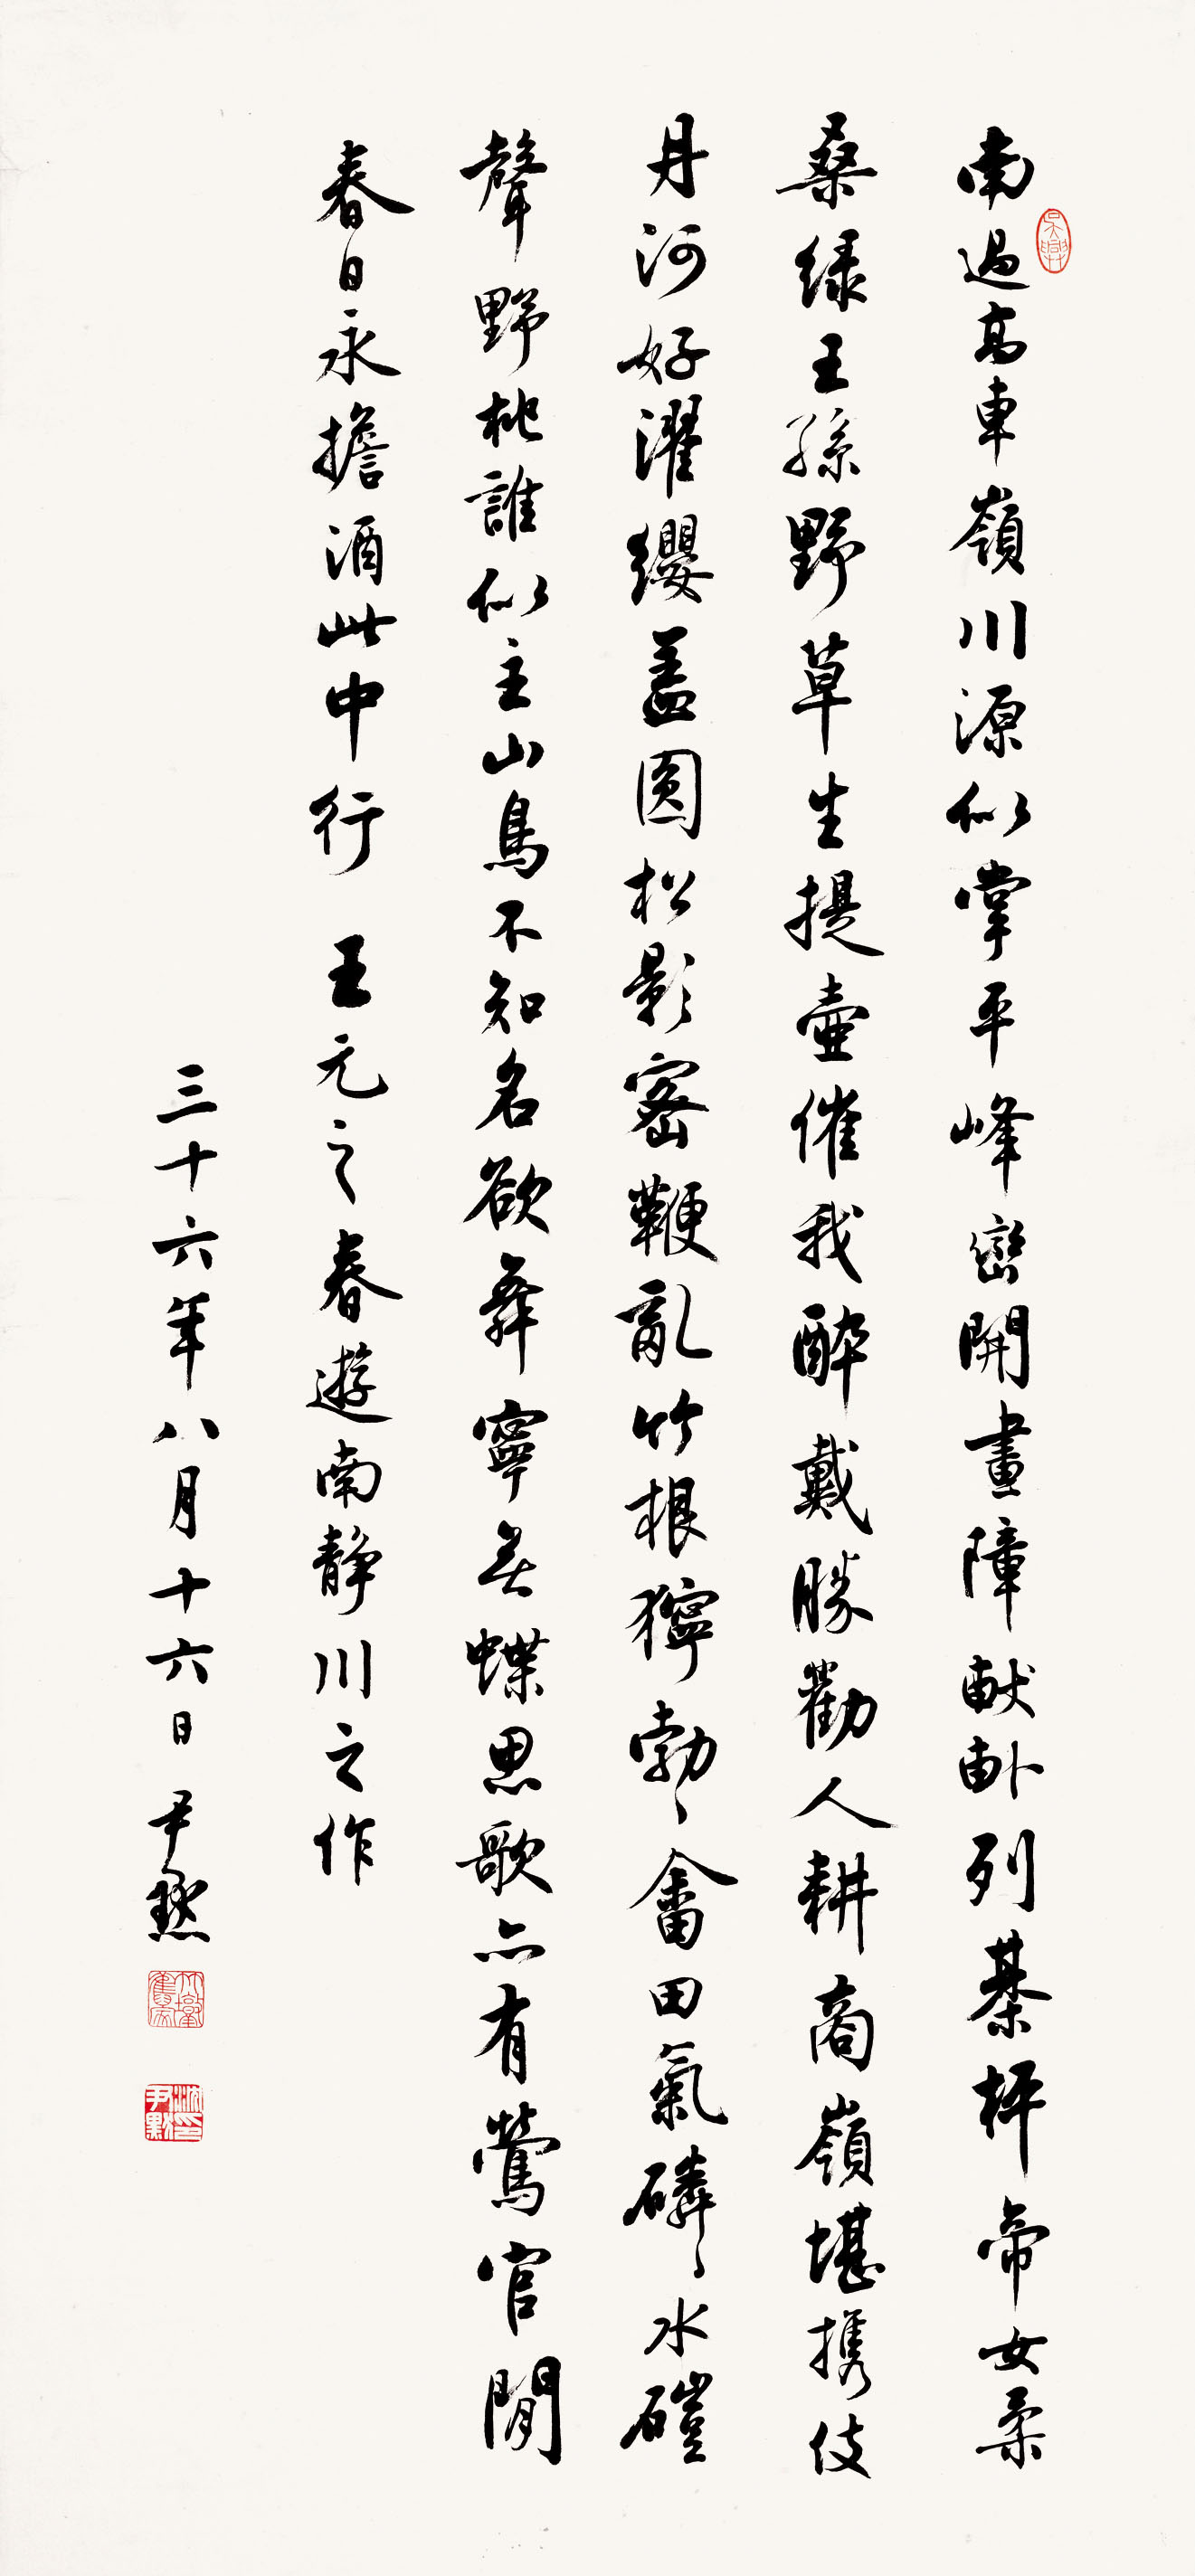 南過高車嶺川源似掌平峰巒開畫障畎畝列棊枰帝女柔
桑綠王孫野草生提壺催我醉戴勝勸人耕商嶺堪攜伎
丹河好濯纓蓋圓松影密鞭亂竹根獰勃〻畬田氣磷〻水磑
聲野桃誰似主山鳥不知名欲舞寧無蝶思歌亦有鶯官閒
春日永擔酒此中行 王元之春遊南靜川之作
三十六年八月十六日尹默
吳興
竹墩舊家
沈尹默印